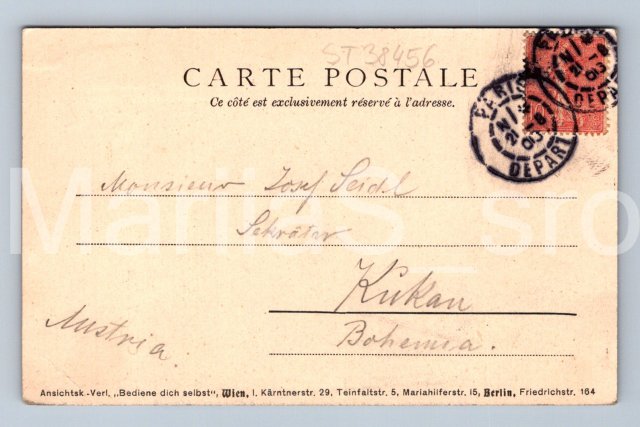 ST 38456
CARTE POSTALE
Ce côté est exclusivement réservé à l'adresse.
PARIS
DEPART
DEPART
Monsieur Josef Seidl
Sekretär
Kukan
Austria
Bohemia.
Ansichtsk.-Verl. „Bediene dich selbst", Wien, I. Kärntnerstr. 29, Teinfaltstr. 5, Mariahilferstr. 15, Berlin, Friedrichstr. 164